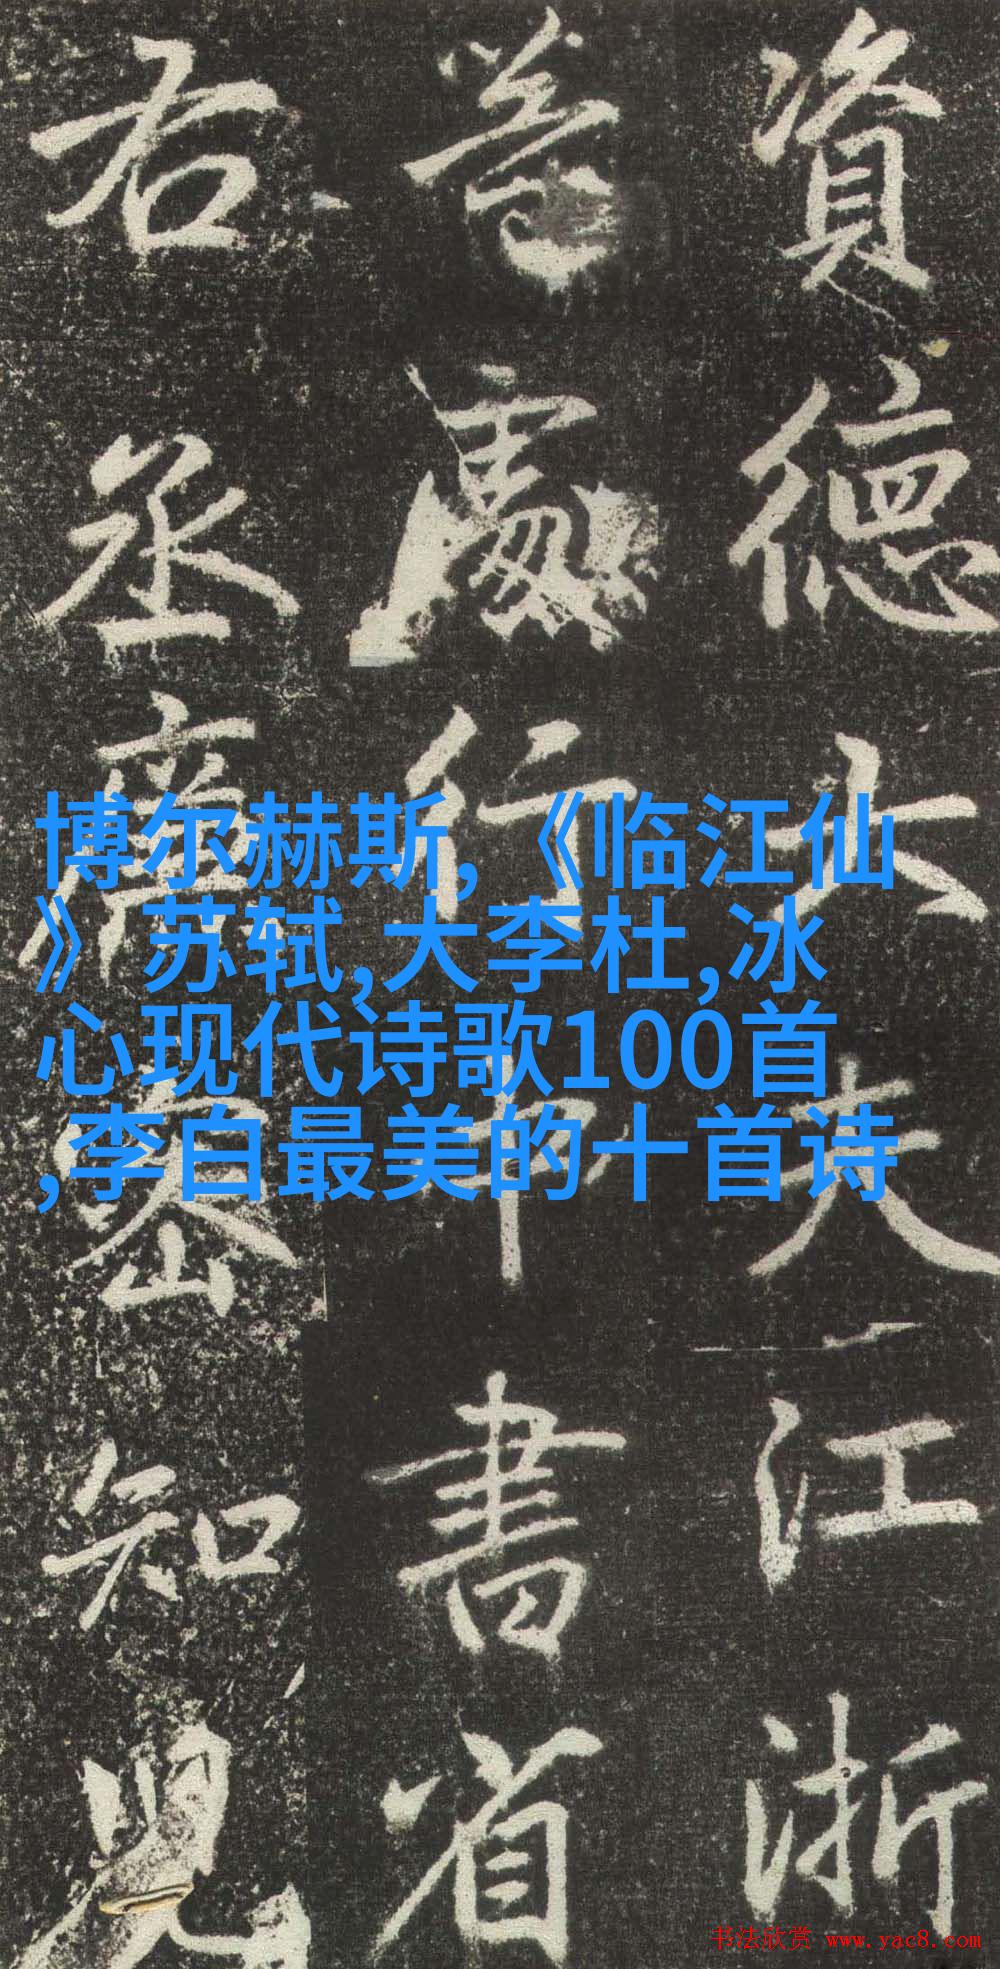 資德大夫江浙
等處行中書省
右丞廉密知兒
博尔赫斯,《临江仙
》苏轼,大李杜,冰
心现代诗歌100首
,李白最美的十首诗
书法欣赏 www.yac8.com